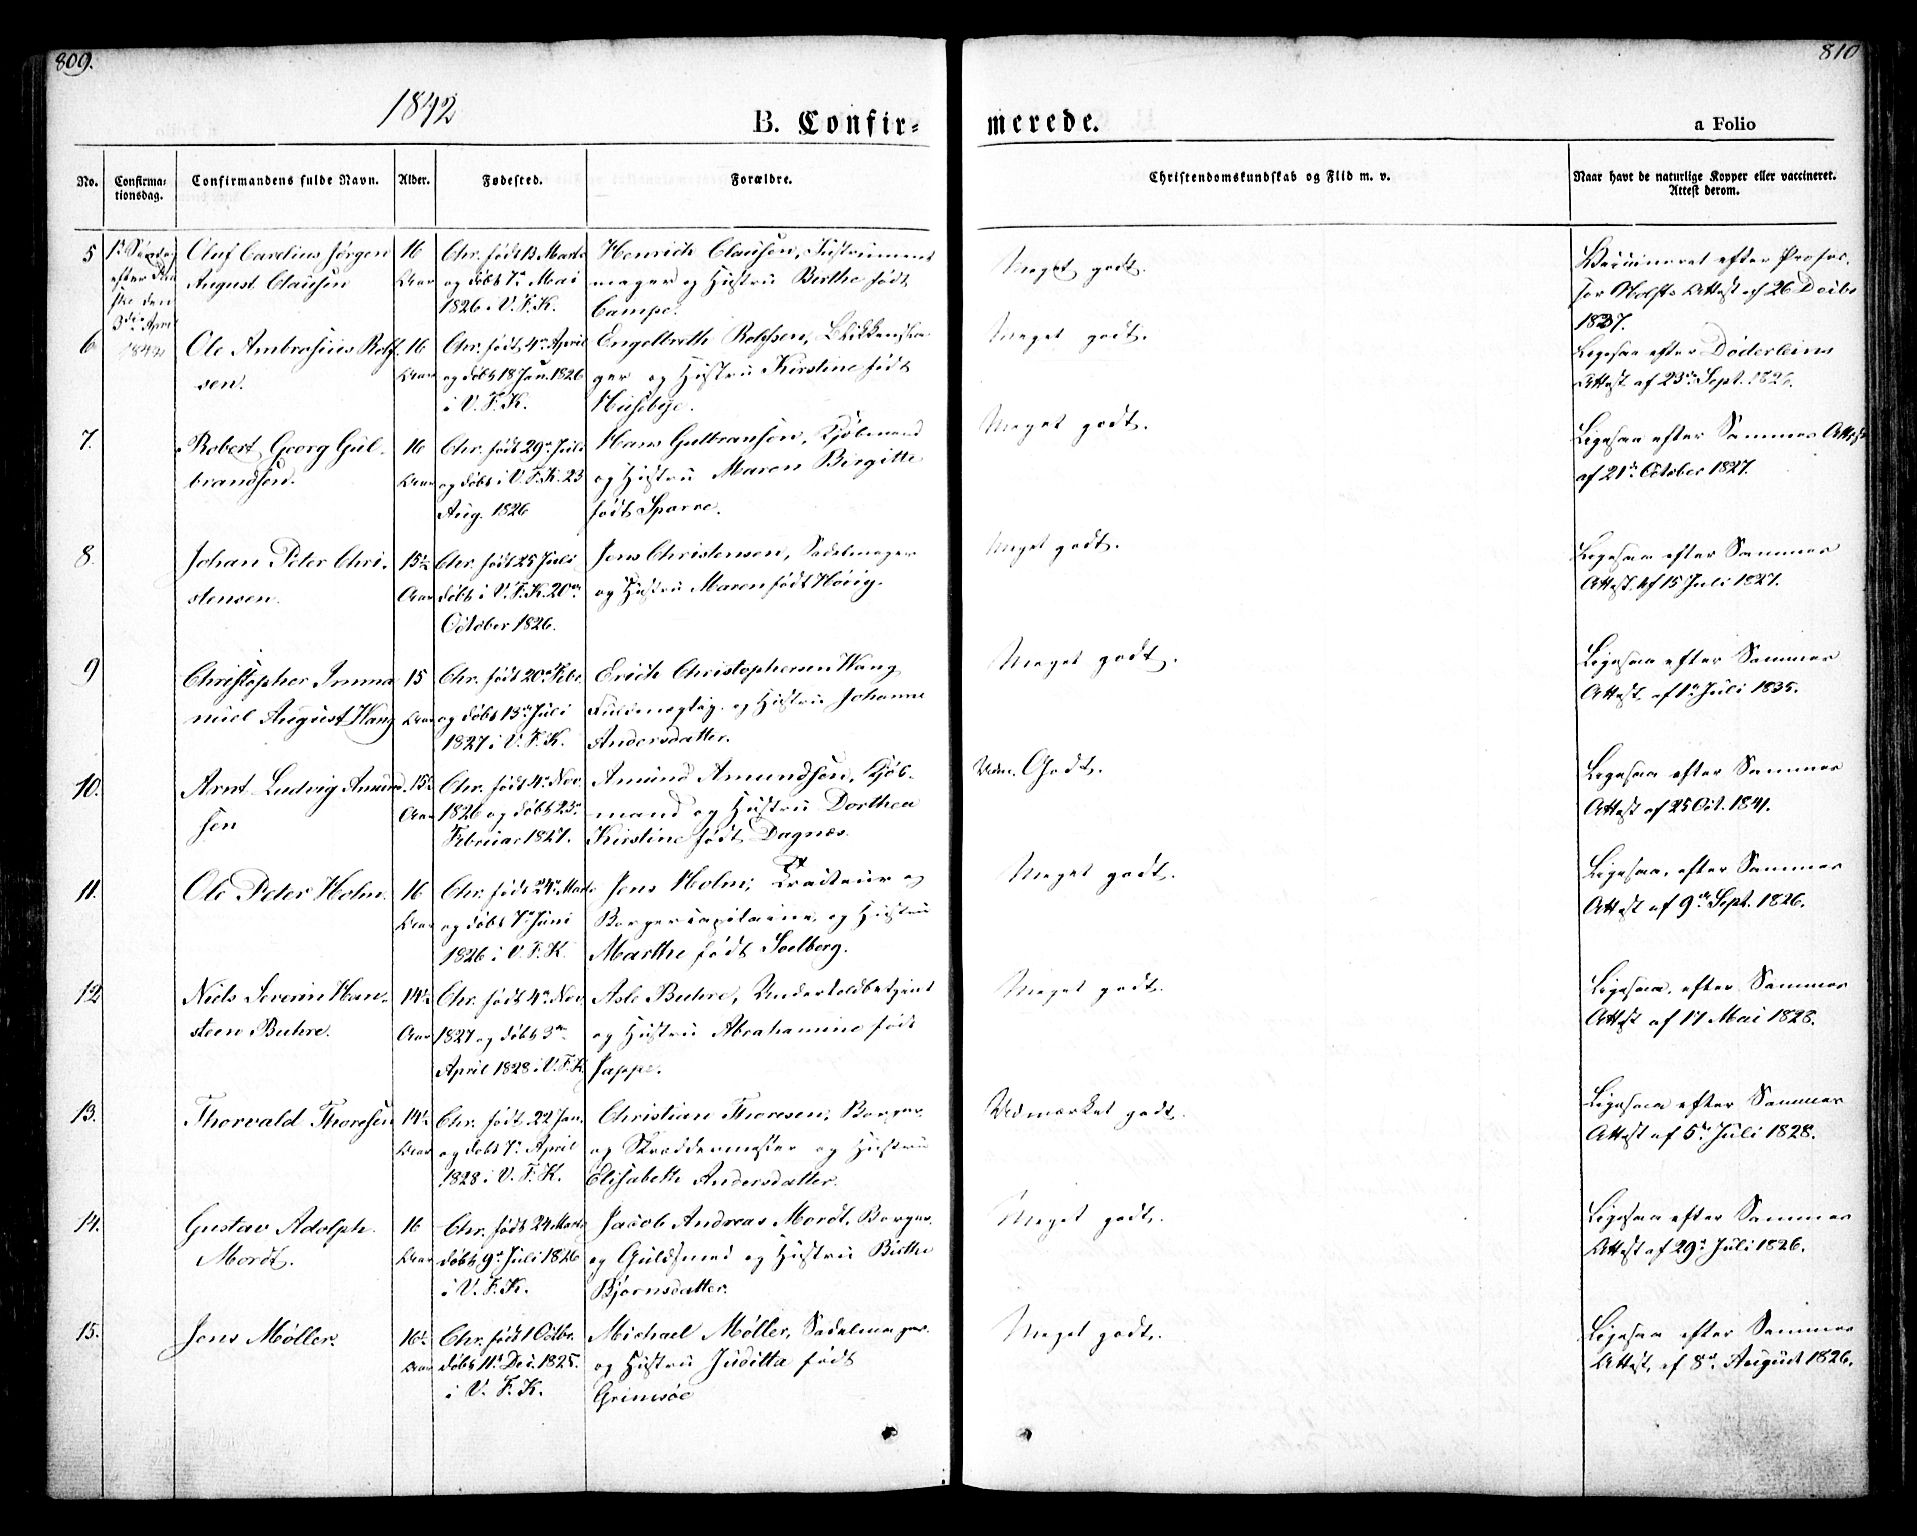 809.
810
1842
B. Confir-
merede.
a Folio
No.
Confirma-
tionsdag.
Confirmandens fulde Navn.
Alder.
Fødested.
Forældre.
Christendomskundskab og Flid m. v.
Naar havt de naturlige Kopper eller vaccineret.
Attest derom.
5
1ste Søndag
efter Paa-
ske den
3die April
1842
Oluf Carelius Jørgen
August Clausen
16
Aar
Chr. født 13 Marts
og døbt 7de Mai
1826 i V. F. K.
Henrich Clausen, Instrument
mager og Hustru Birthe født
Campe.
Meget godt.
Vaccineret efter Profes-
sor Holsts Attest af 26 Decbr
1837.
6
Ole Ambrosius Rolf-
sen.
16
Aar
Chr. født 4de April
og døbt 18 Jun. 1826
i V. F. K.
Engelbreth Rolfsen, Blikkensla-
ger og Hustru Kirstine født
Huseby.
Meget godt.
Ligesaa efter Døderleins
Attest af 23de Sept. 1826.
7.
Robert Georg Gul-
brandsen.
16
Aar
Chr. født 29de Juli
og døbt i V. F. K. 23
Aug. 1826
Hans Gulbransen, Kjøbmand
og Hustru Maren Birgitte
født Sparre.
Meget godt.
Ligesaa efter Sammes Attest
af 21de October 1827.
8.
Johan Peter Chri-
stensen.
15½
Aar
Chr. født 25 Juli
døbt i V. F. K. 20de
October 1826.
Jens Christensen, Sadelmager
og Hustru Maren født Høiig.
Meget godt.
Ligesaa efter Sammes
Attest af 15 Juli 1827.
9
Christopher Imma-
nuel August Wang
15
Aar
Chr. født 20de Febr.
og døbt 15de Juli
1827 i V. F. K.
Erich Christophersen Wang
Fuldmægtig og Hustru Johanne
Andersdatter.
Meget godt.
Ligesaa efter Sammes
Attest af 1de Juli 1835.
10.
Arnt Ludvig Amund-
sen
15½
Aar
Chr. født 4de Nov.
1826 og døbt 23de
Februar 1827.
Amund Amundsen, Kjøb-
mand og Hustru Dorthea
Kirstine født Dagnæs.
Udm. Godt.
Ligesaa efter Sammes
Attest af 25 Oct. 1841.
11.
Ole Peter Holm.
16
Aar
Chr. født 24de Marts
og døbt 7de Juni
1826 i V. F. K.
Jens Holm, Traiteur og
Borgercapitaine, og Hustru
Marthe født Soelberg.
Meget godt.
Ligesaa, efter Sammes
Attest af 9de Sept. 1826.
12
Niels Severin Han-
steen Buhre.
14½
Aar
Chr. født 4de Nov.
1827 og døbt 3de
April 1828 i V. F. K.
Asle Buhre, Undertoldbetjent
og Hustru Abrahamine født
Jappe.
Meget godt.
Ligesaa, efter Sammes
Attest af 17 Mai 1828.
13.
Thorvald Thoresen
14½
Aar
Chr. født 22 Jan.
og døbt 7de April
1828 i V. F. K.
Christian Thoresen, Borger
og Skræddermester og Hustru
Elisabeth Andersdatter.
Udmærket godt.
Ligesaa efter Sammes
Attest af 5te Juli 1828.
14.
Gustav Adolph
Mordt.
16
Aar
Chr. født 24 Marts
døbt 9de Juli 1826
i V. F. K.
Jacob Andreas Mordt, Borger
og Guldsmed og Hustru Birthe
Bjørnsdatter.
Meget godt.
Ligesaa efter Sammes
Attest af 29de Juli 1826.
15.
Jens Møller.
16½
Aar
Chr. født 1 Octbr.
døbt 11te Dec. 1825.
i V. F. K.
Michael Møller, Sadelmager
og Hustru Juditta født
Grimsøe
Meget godt.
Ligesaa efter Sammes
Attest af 8de August 1826.